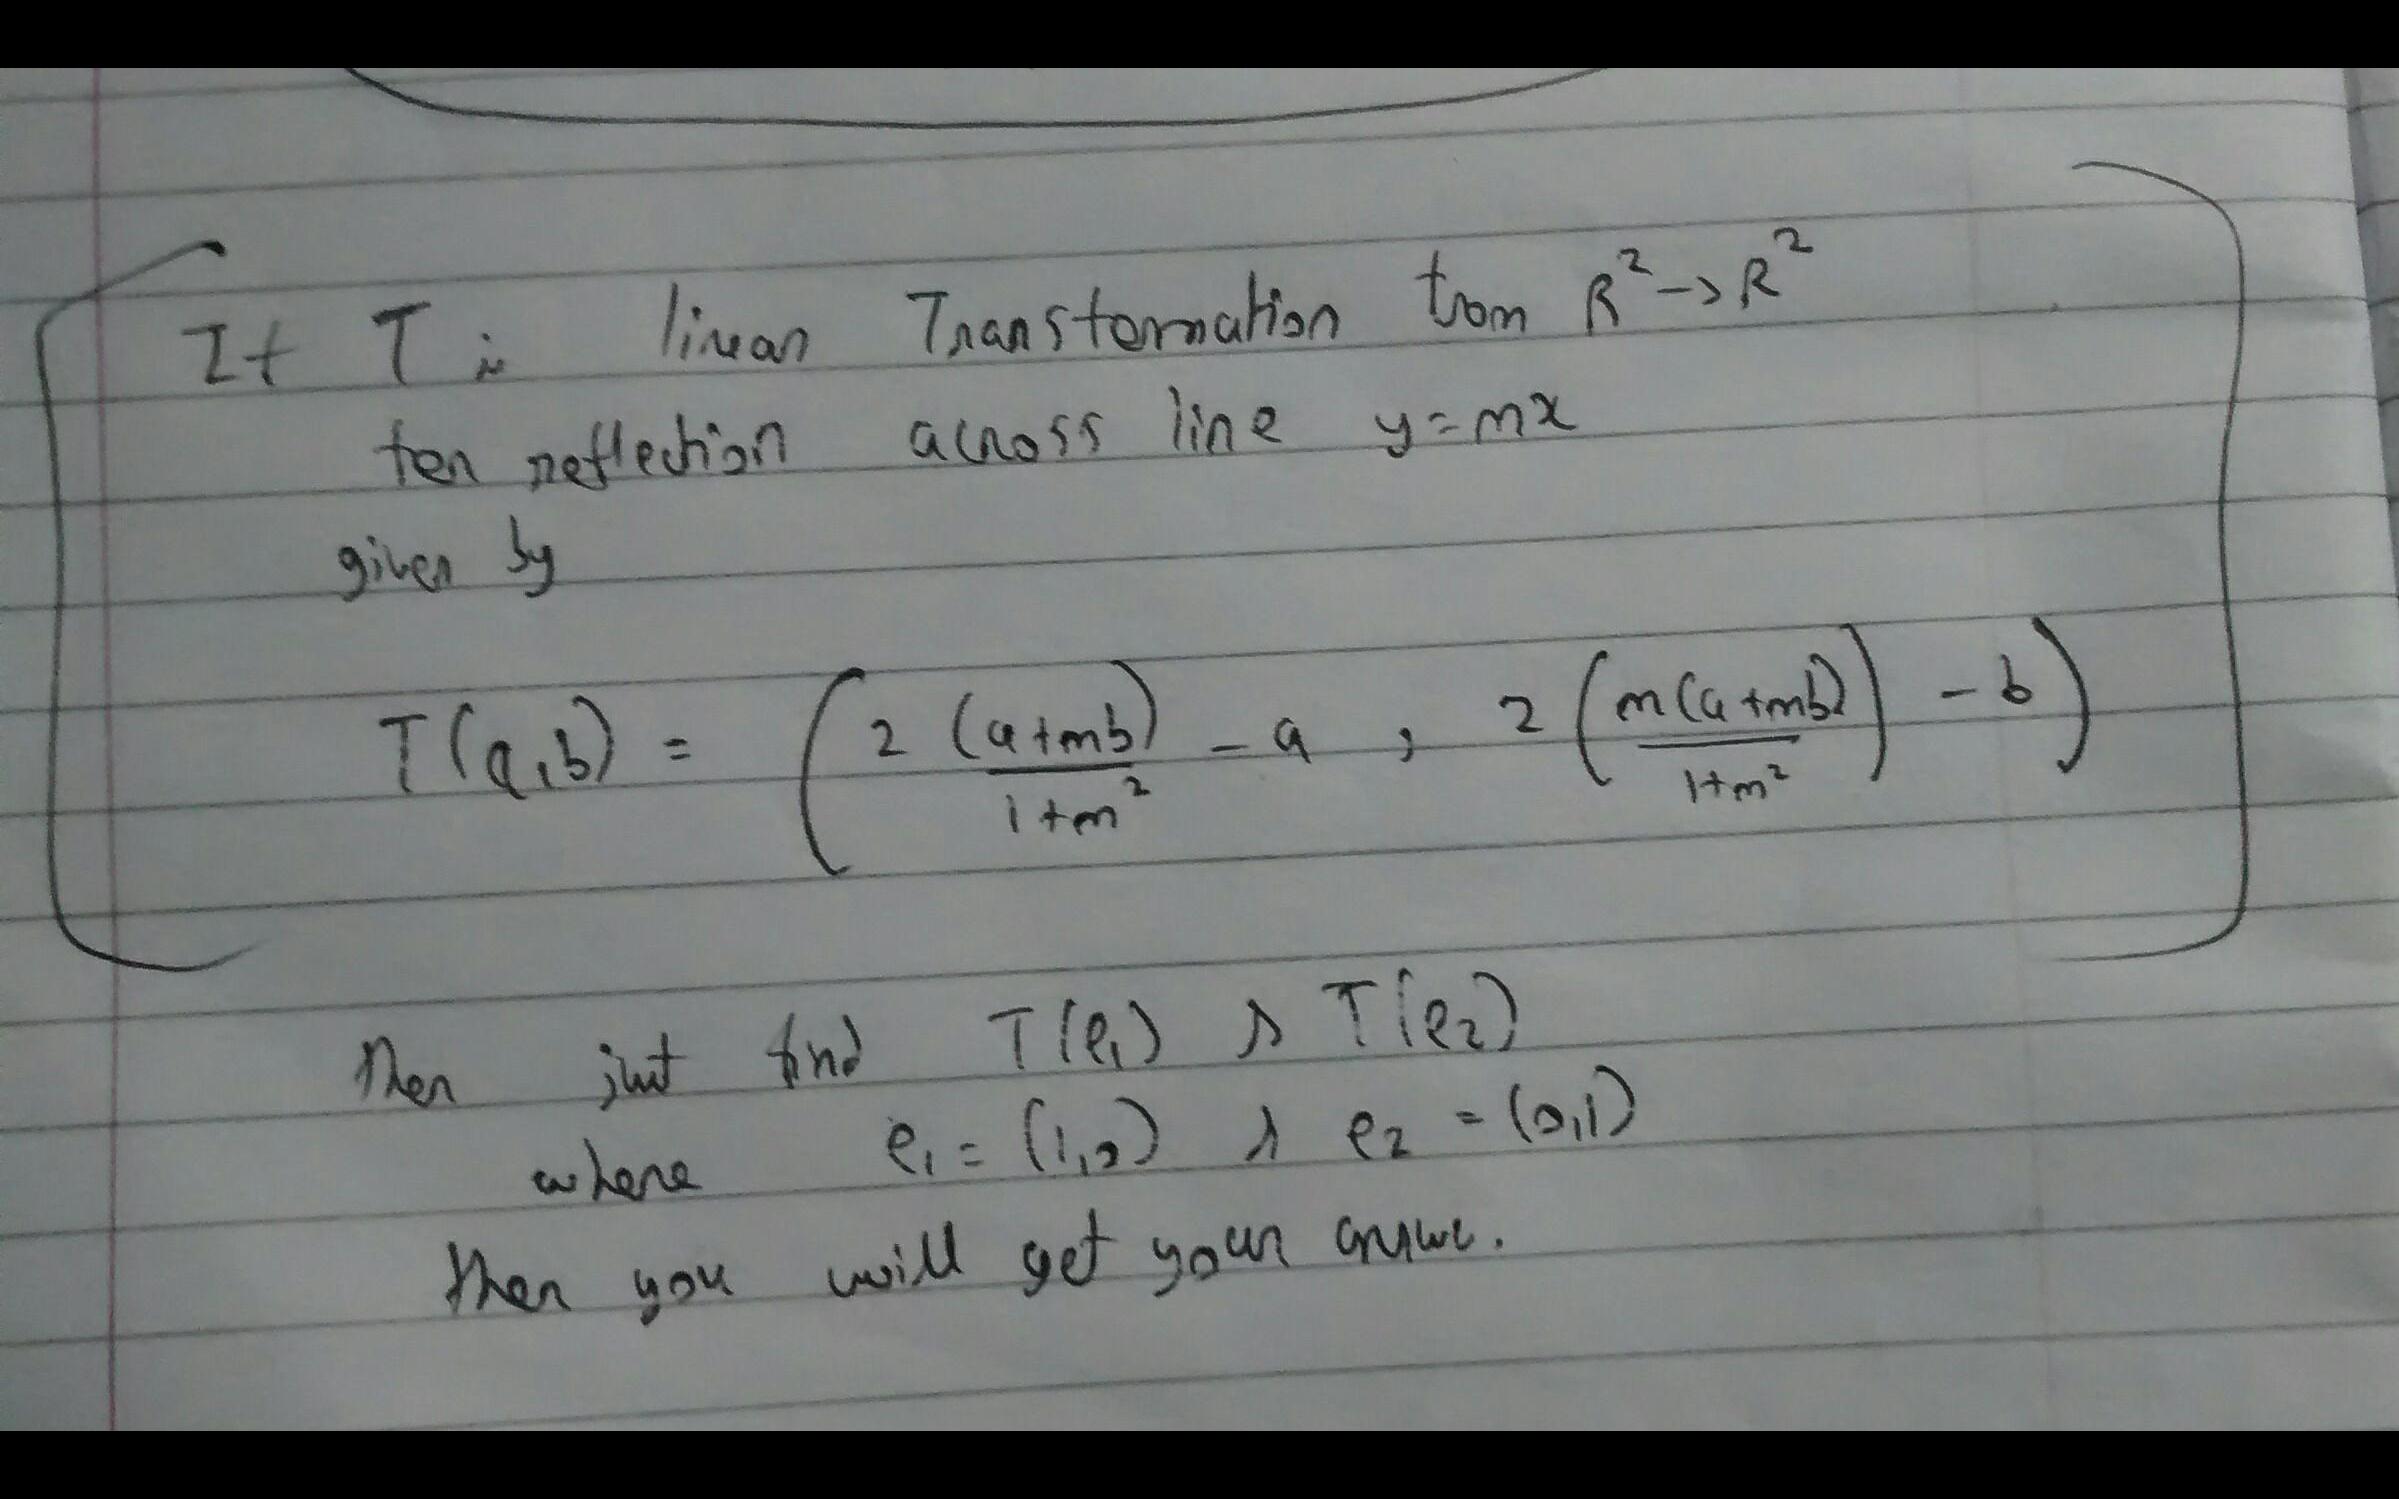 If T is linear Transformation from R² → R²
for reflection across line y = mx
given by
T(a,b) = ( 2 (a+mb)/(1+m²) - a , 2 ( m(a+mb)/(1+m²) ) - b )
Then just find T(e₁) & T(e₂)
where e₁ = (1,0) & e₂ = (0,1)
then you will get your answer.